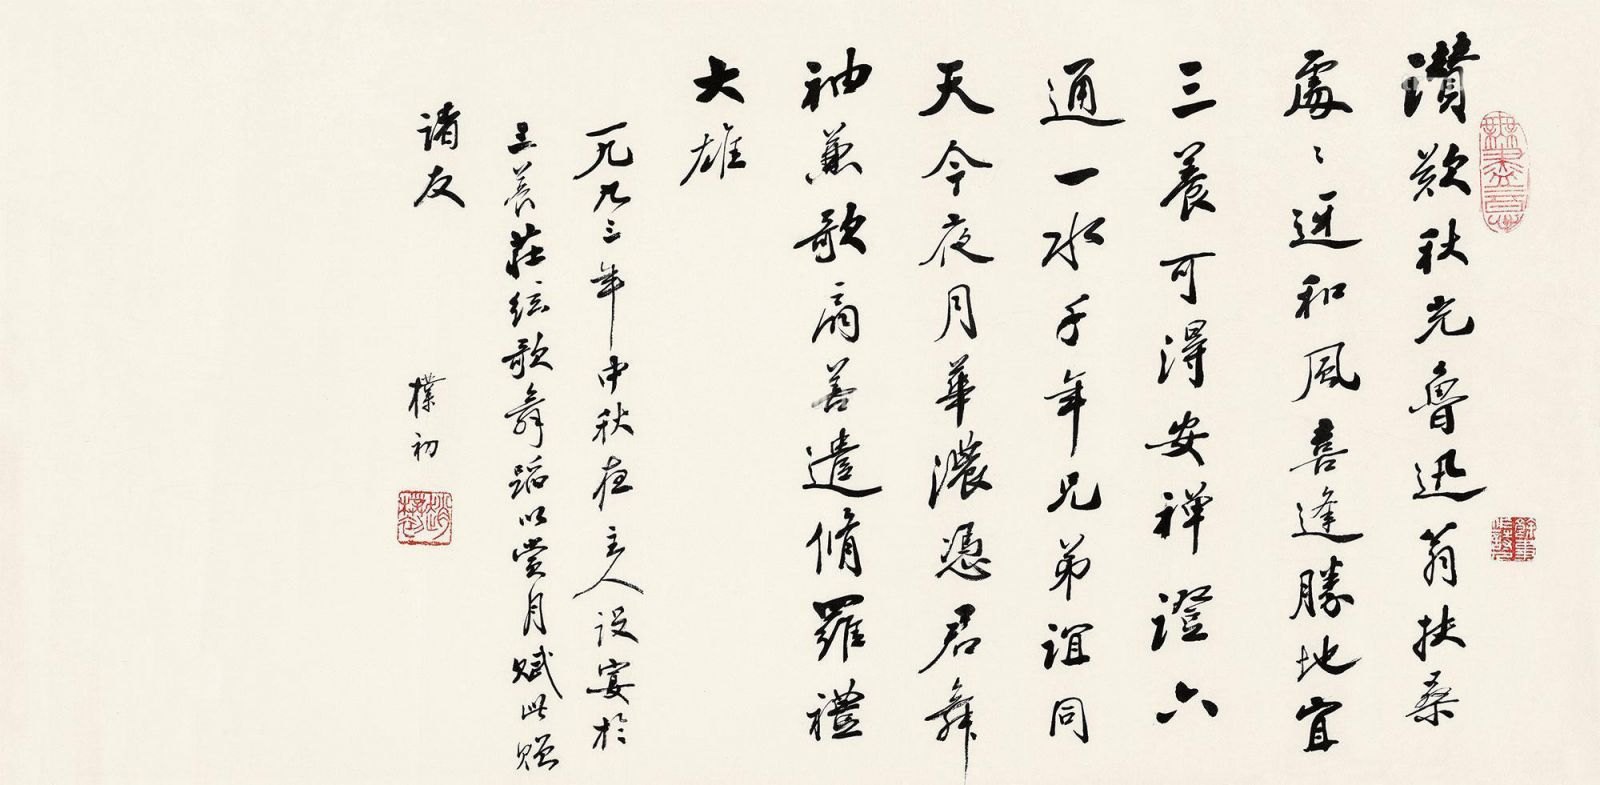 讚歎秋光魯迅翁扶桑
處〻迓和風喜逢勝地宜
三養可得安禅證六
通一水千年兄弟誼同
天今夜月華濃憑君舞
袖兼歌扇善遣脩羅禮
大雄
一九九三年中秋夜主人设宴於
三养莊弦歌舞蹈以赏月赋此贈
諸友
樸初
無盡意
趙樸初